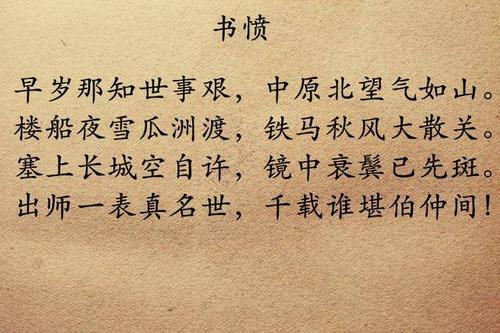 书愤
早岁那知世事艰，中原北望气如山。
楼船夜雪瓜洲渡，铁马秋风大散关。
塞上长城空自许，镜中衰鬓已先斑。
出师一表真名世，千载谁堪伯仲间！